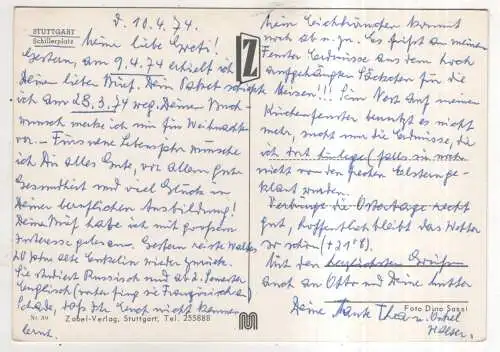 STUTTGART
Schillerplatz
d. 10.4.74.
Meine liebe Greti!
Gestern, am 9.4.74 erhielt ich
Deinen lieben Brief. Dein Paket schickte
ich am 28.3.74 weg. Deinen Buch-
wunsch merke ich mir für Weihnachten
vor. – Fürs neue Lebensjahr wünsche
ich Dir alles Gute, vor allem gute
Gesundheit und viel Glück in
Deiner beruflichen Ausbildung!
Deinen Brief habe ich mit großem
Interesse gelesen. Gestern reiste
20 Jahre alte Enkelin wieder zurück.
Sie studiert Russisch und ab 2. Semester
Englisch (vorher fing sie Französisch an)
Schade, daß Ihr Euch nicht kennen-
lernt.
Nr. 89
Zobel-Verlag, Stuttgart, Tel. 255888
Z
Mein Eichhörnchen kommt
noch ab u. zu. Es frißt an meinem
Fenster Erdnüsse aus dem hoch
aufgehängten Säckchen für die
Meisen!!! Sein Nest auf meinem
Küchenfenster benutzt es nicht
mehr, sucht nur die Erdnüsse, die
ich dort hinlege (falls sie
nicht von den frechen Elstern ge-
klaut wurden.
Verbringe die Ostertage recht
gut, hoffentlich bleibt das Wetter
so schön (+21°C).
Mit den herzlichsten Grüßen
auch an Otto und Deine Mutter
Deine Tante Thea u. Onkel
Foto Dino Sassi